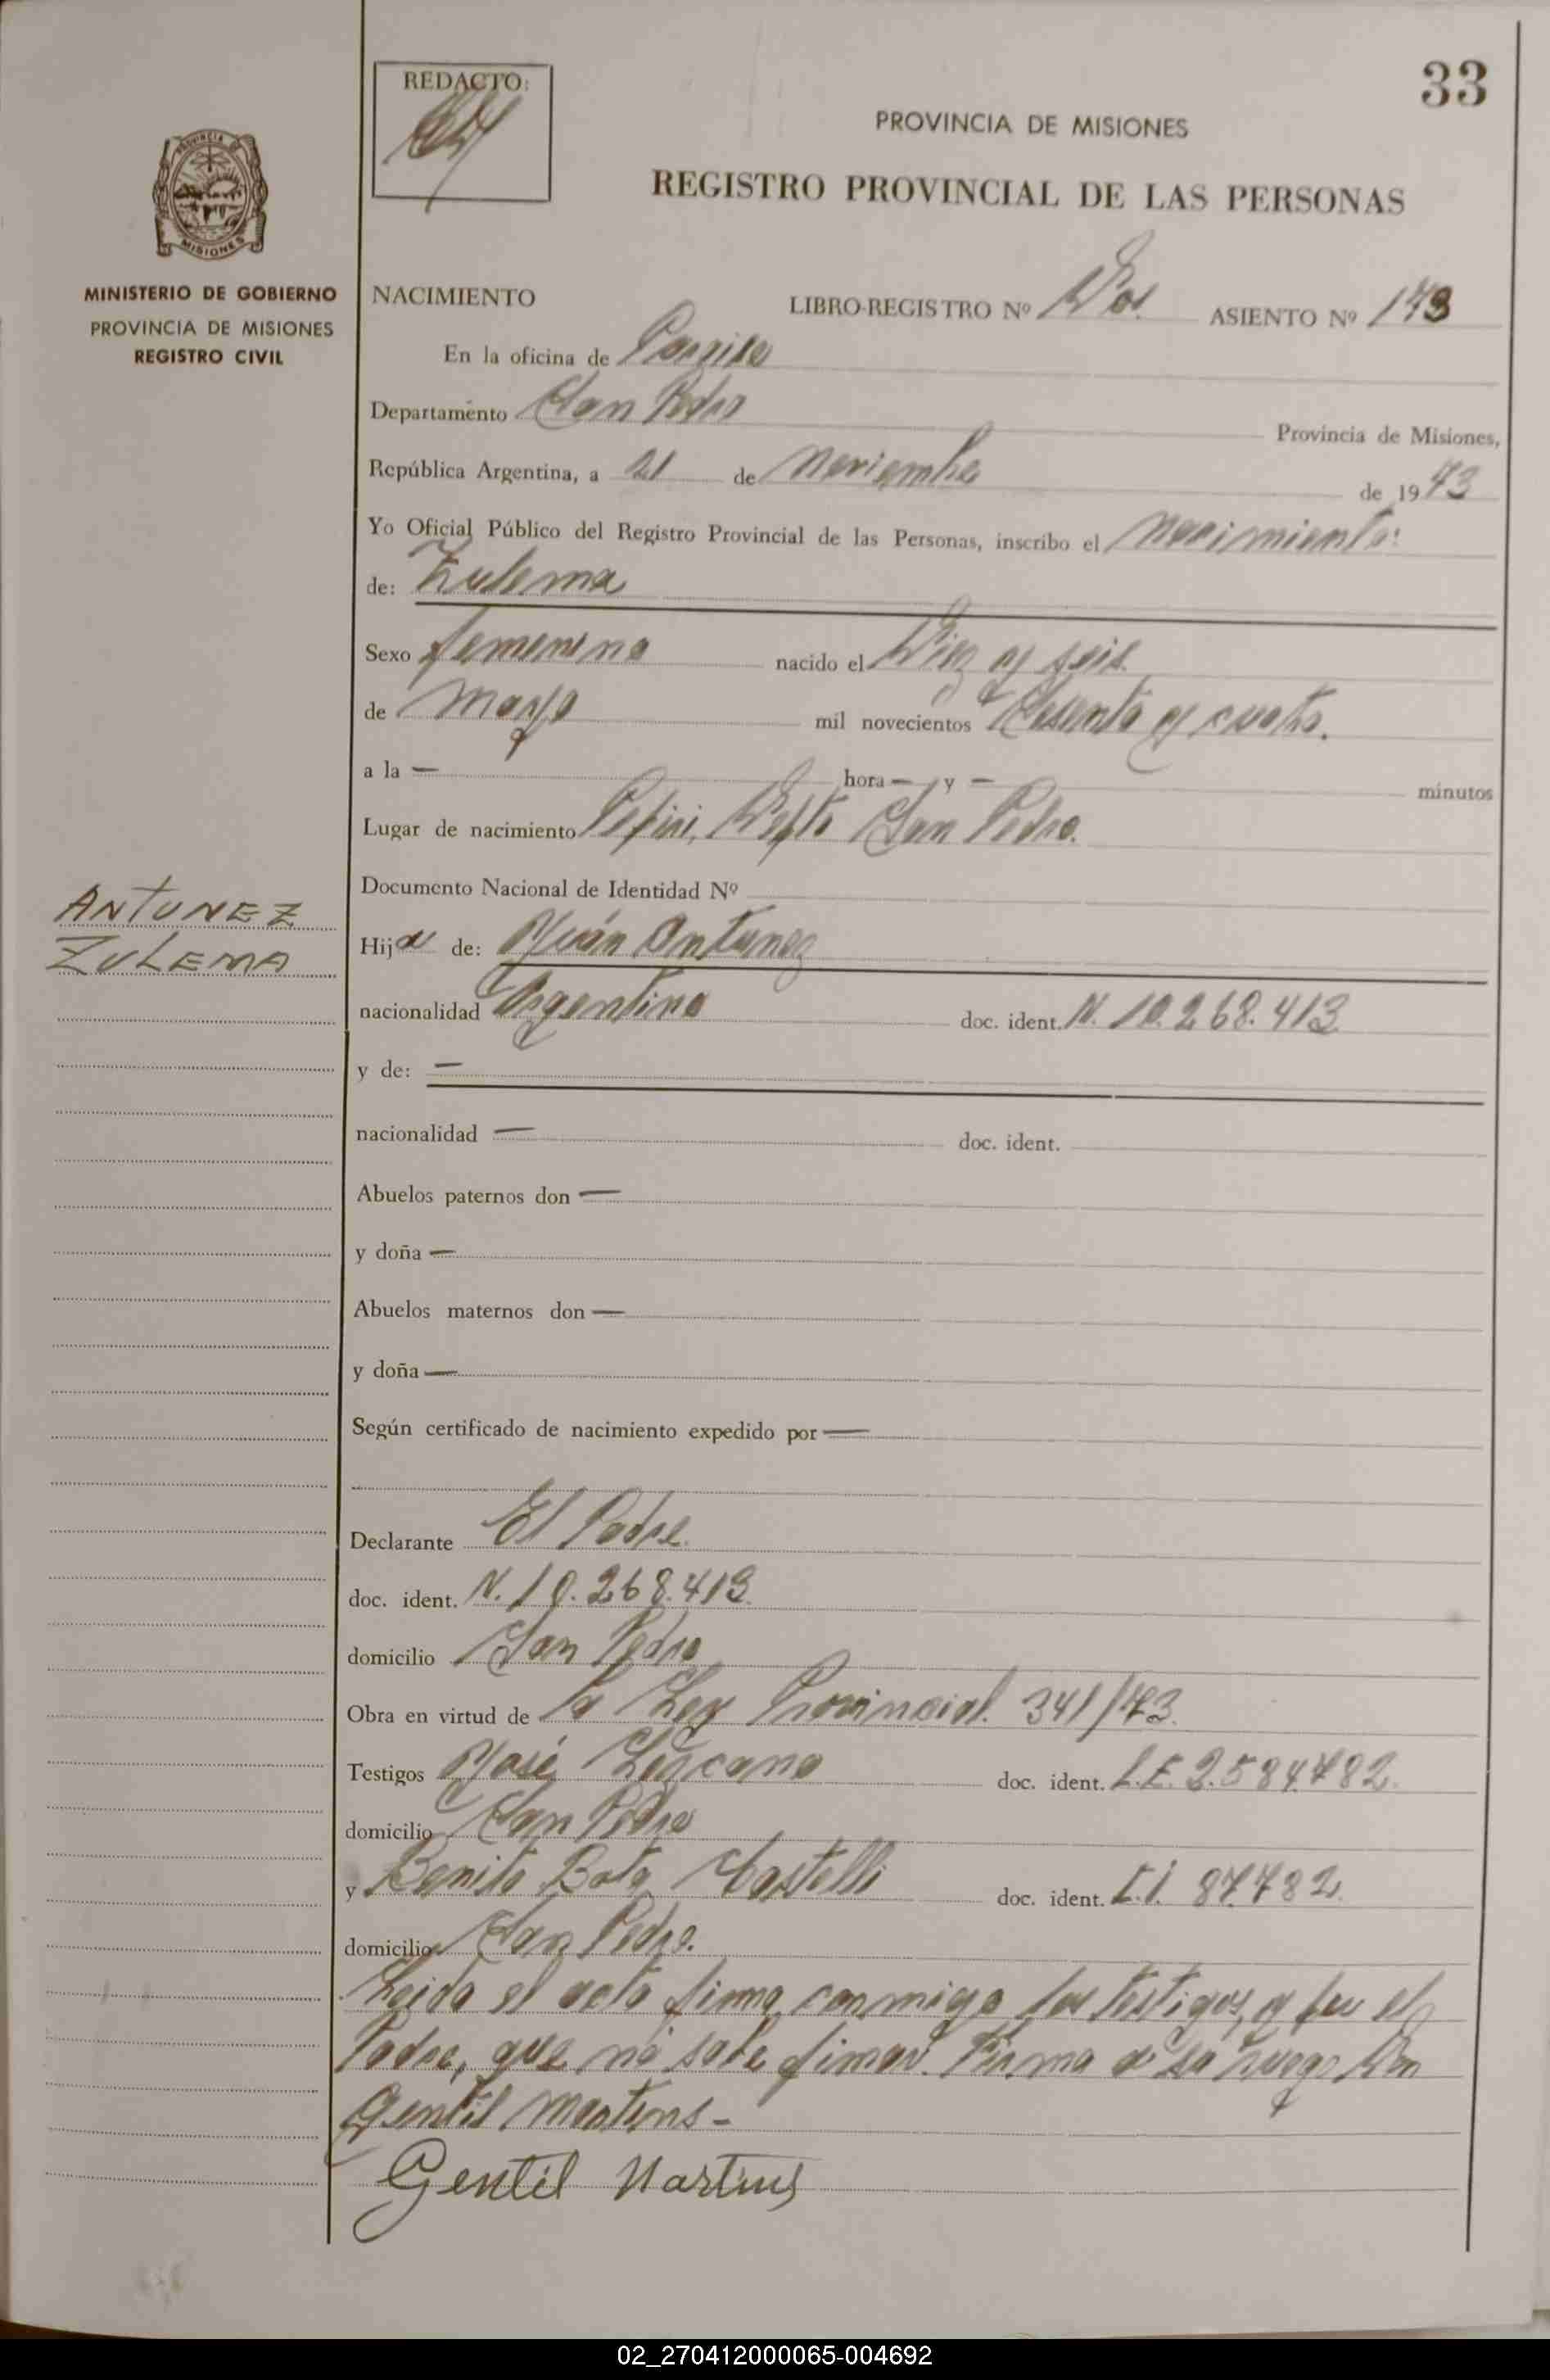 33
REDACTO:
PROVINCIA DE MISIONES
REGISTRO PROVINCIAL DE LAS PERSONAS
PROVINCIA DE
MISIONES
MINISTERIO DE GOBIERNO
PROVINCIA DE MISIONES
REGISTRO CIVIL
NACIMIENTO LIBRO-REGISTRO Nº Dos. ASIENTO Nº 173
En la oficina de
Departamento San Pedro Provincia de Misiones,
República Argentina, a 21 de Noviembre de 1973
Yo Oficial Público del Registro Provincial de las Personas, inscribo el Nacimiento:
de: Zulema
Sexo femenino nacido el Diez y seis
de Marzo mil novecientos sesenta y cuatro.
a la — hora — y — minutos
Lugar de nacimiento Pepiri, Depto San Pedro.
Documento Nacional de Identidad Nº
ANTUNEZ
ZULEMA
Hija de: Juán Antunez
nacionalidad Argentino doc. ident. N. 10.268.413
y de: —
nacionalidad — doc. ident.
Abuelos paternos don —
y doña —
Abuelos maternos don —
y doña —
Según certificado de nacimiento expedido por —
Declarante El Padre.
doc. ident. N. 10.268.413
domicilio San Pedro
Obra en virtud de la Ley Provincial. 341/73.
Testigos José Lezcano doc. ident. L.E. 2.584.782.
domicilio San Pedro
y Benito Bota Castelli doc. ident. C.I. 87.782.
domicilio San Pedro.
Leida el acta firma conmigo los testigos, y por el
Padre, que no sabe firmar. Firma a su ruego Don
Gentil Martins-
Gentil Martins
02_270412000065-004692